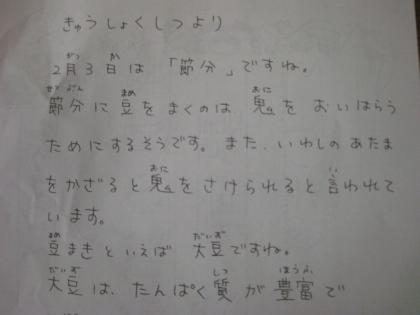 きゅうしょくしつより
2月3日は「節分」ですね。
節分に豆をまくのは、鬼をおいはらう
ためにするそうです。また、いわしのあたま
をかざると鬼をさけられると言われて
います。
豆まきといえば大豆ですね。
大豆は、たんぱく質が豊富で